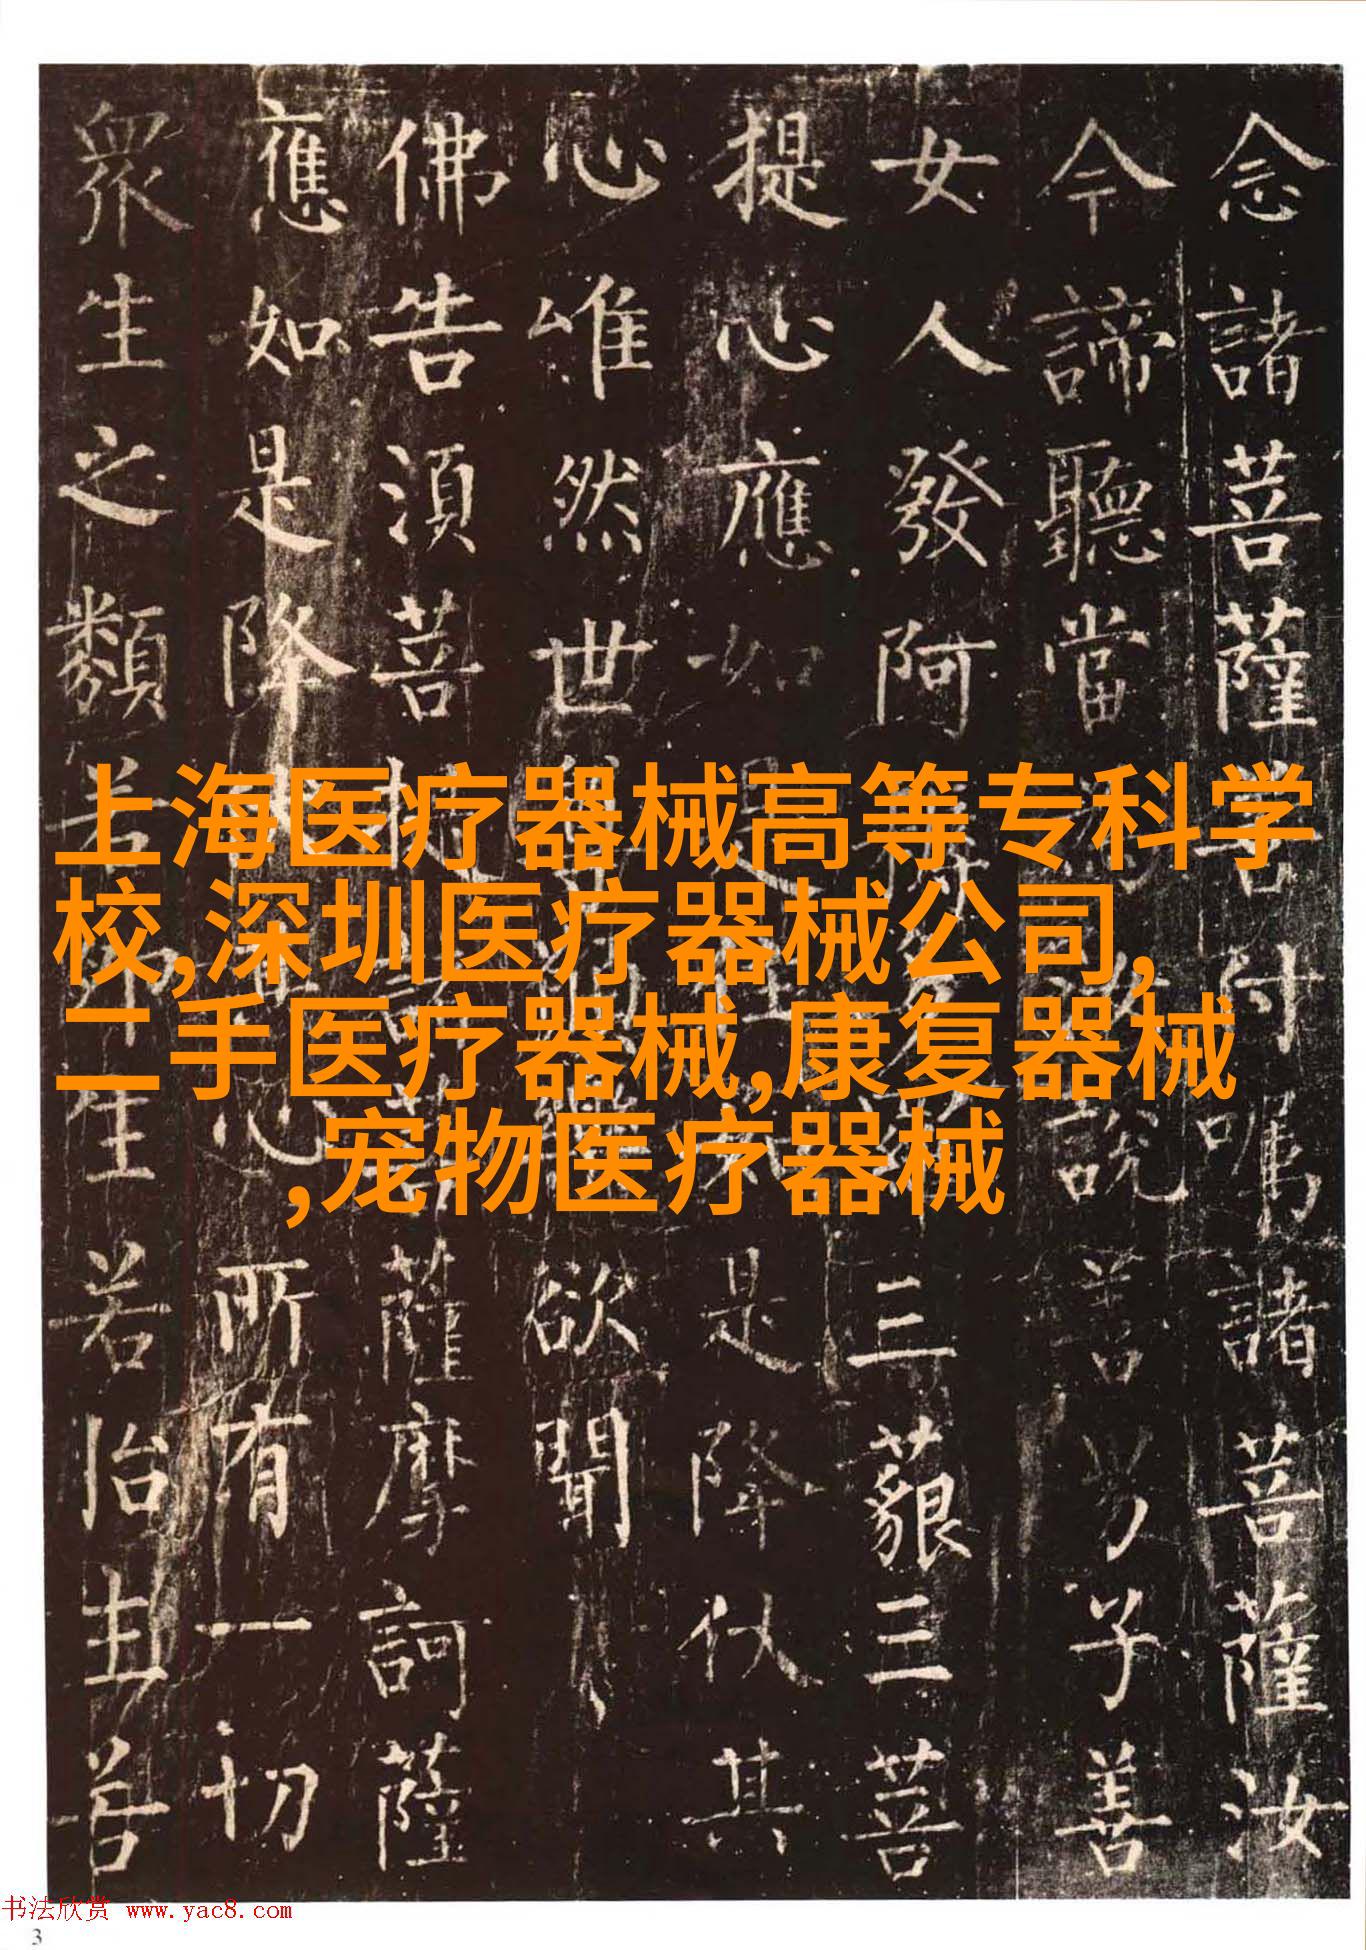 念諸菩薩善付嘱諸菩薩汝
今諦聽當說善男子善
女人發阿三藐三菩
提心應如是是降伏其
心唯然世欲聞
佛告須菩薩摩訶薩
應如是降心所有一切
衆生之類若生若胎生若
上海医疗器械高等专科学
校,深圳医疗器械公司,
二手医疗器械,康复器械
,宠物医疗器械
书法欣赏 www.yac8.com
3